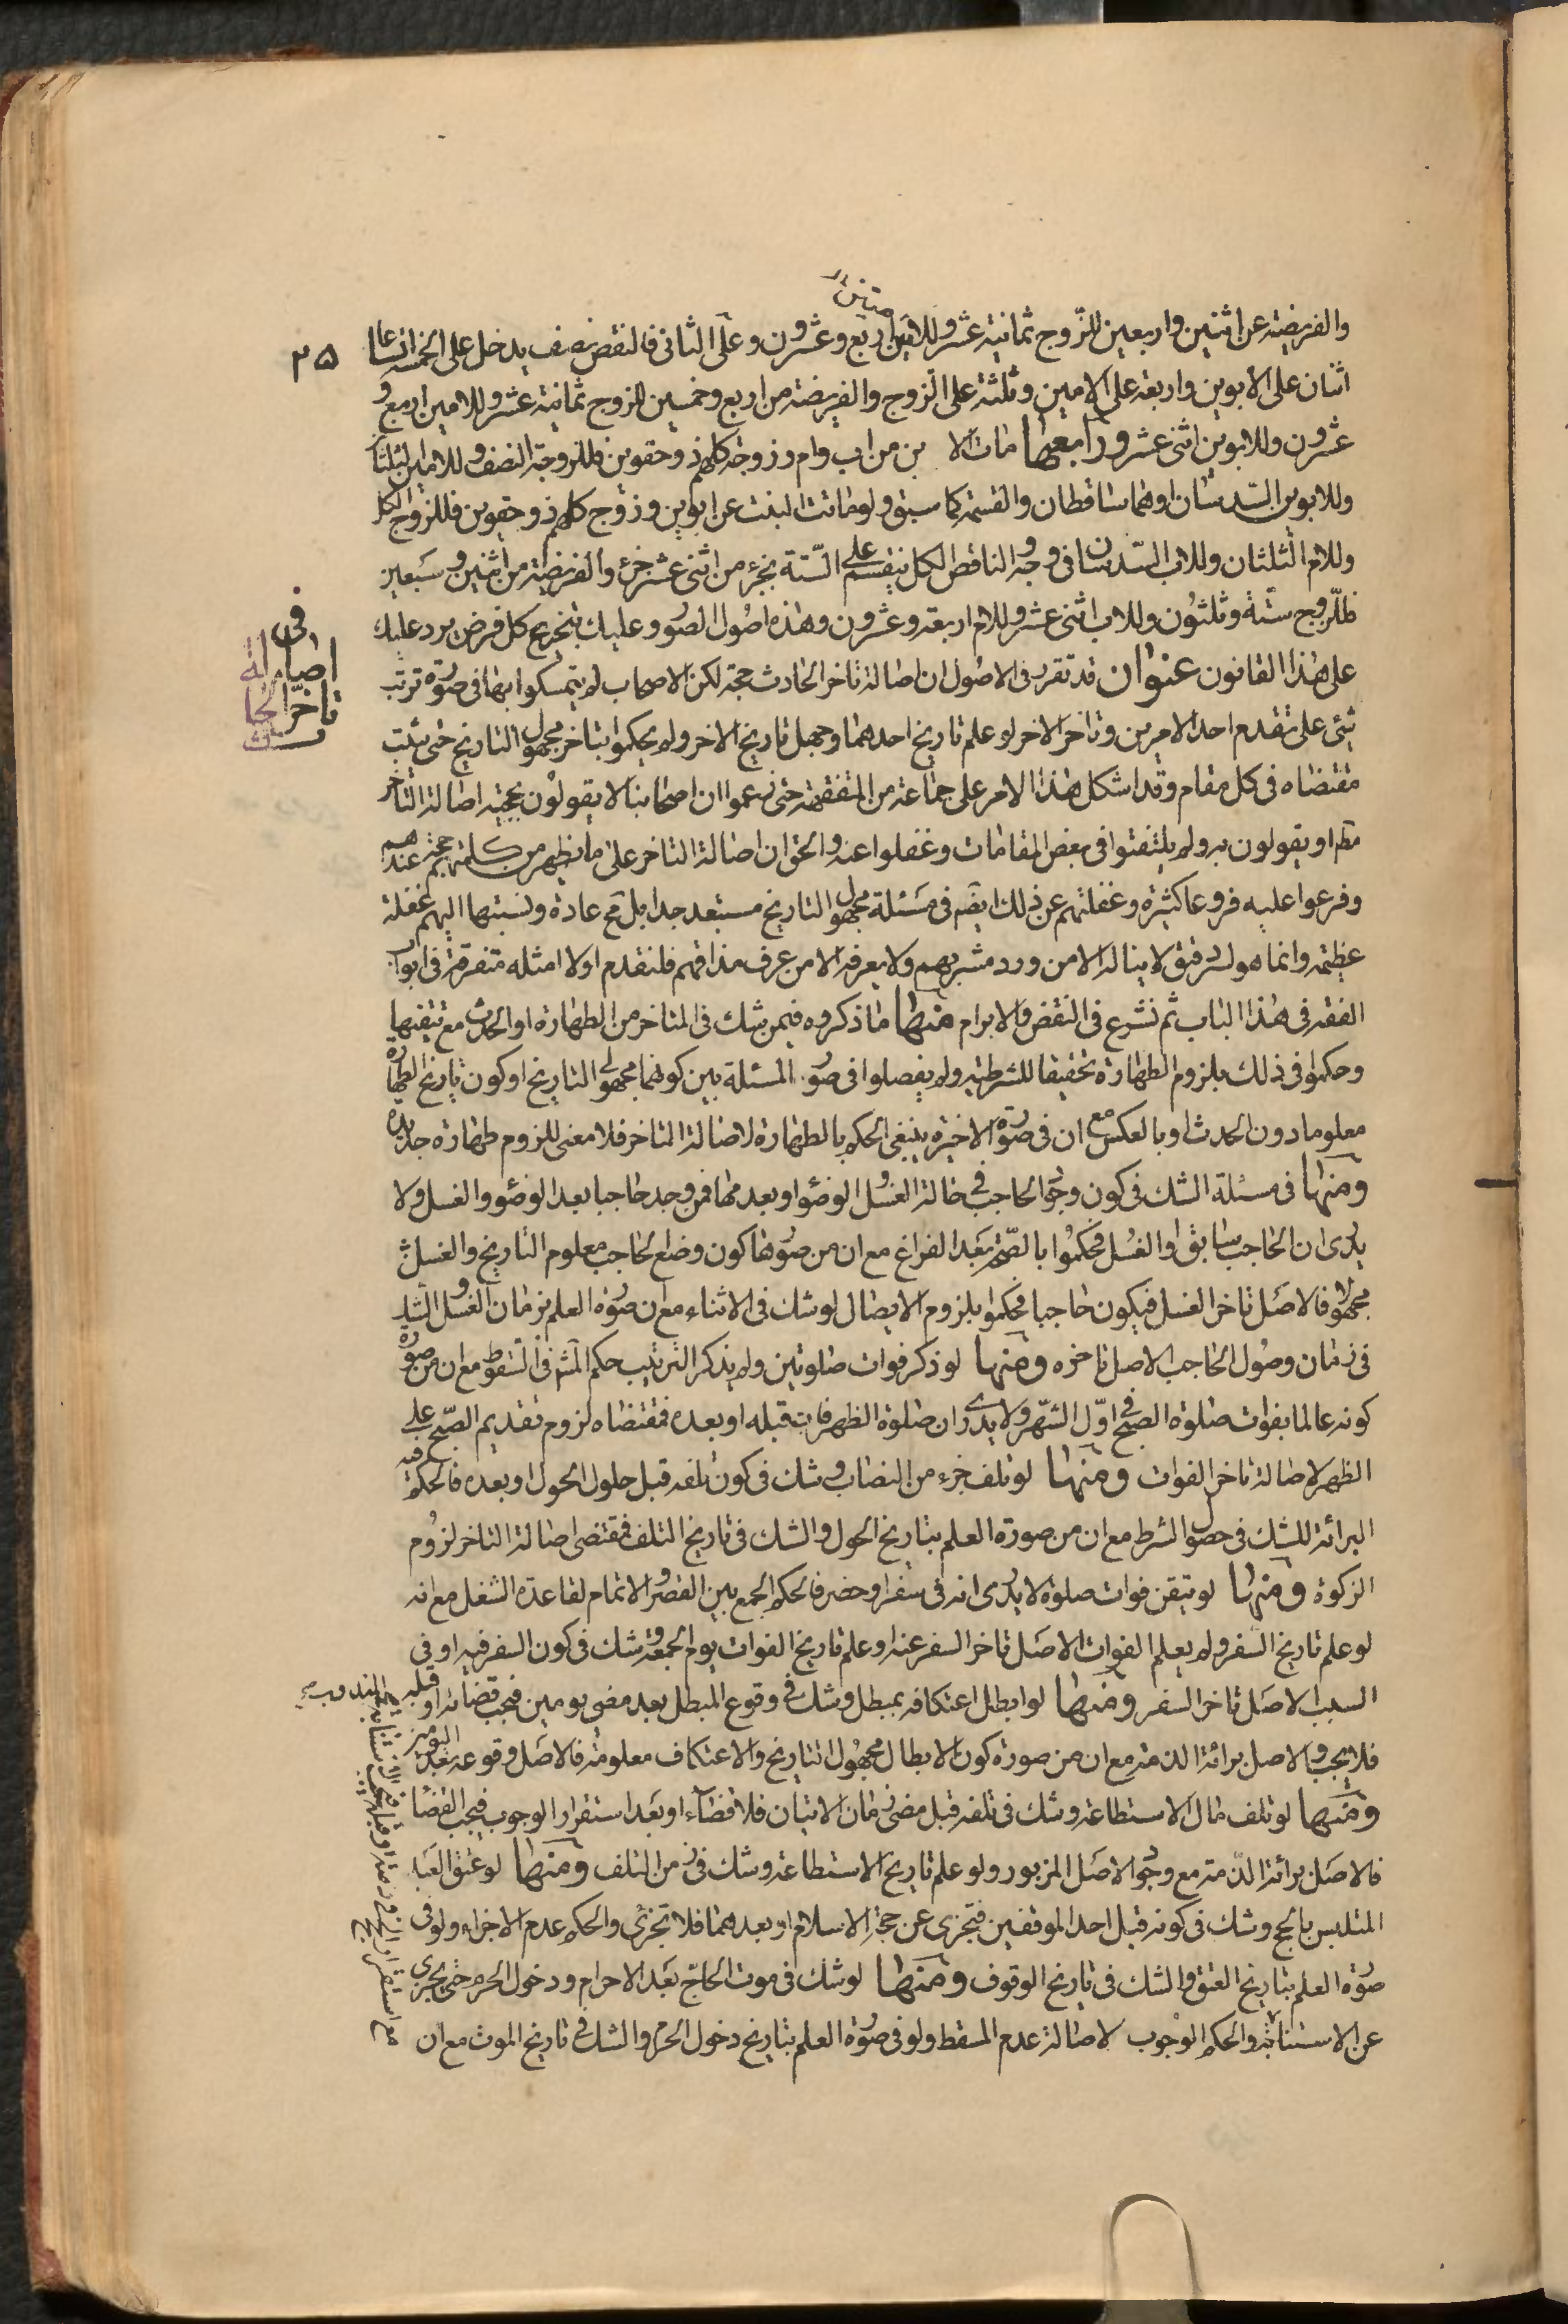 والفریضة عن اثنین واربعین للزوج ثمانیة عشر وللامین اربع وعشرون وعلی الثانی فالنقص نصف یدخل علی الخمسة اتساعا
۳۵
اثنان علی الابوین واربعة علی الامین وثلثة علی الزوج والفریضة من اربع وخمسین للزوج ثمانیة عشر وللامین اربع و
عشرون وللابوین اثنی عشر ورابعها مات الا بن من اب وام وزوجة کلهم ذو حقوین فللزوجة النصف وللام الثلثان
وللابوین السدسان اوهما ساقطان والقسمة کما سبق ولو ماتت البنت عن ابوین وزوج کلهم ذو حقوین فللزوج الکل
وللام الثلثان وللاب السدسان فی وجه والناقص الکل فینقسم علی الستة بجزء من اثنی عشر جزء والفریضة من اثنین وسبعین
فللزوج ستة وثلثون وللاب اثنی عشر وللام اربعة وعشرون وهذه اصول الصور وعلیک بتخریج کل فرض یرد علیک
فی اصالة تاخر الحادث
علی هذا القانون عنوان قد تقرر فی الاصول ان اصالة تاخر الحادث حجة لکن الاصحاب لم یتمسکوا بها فی صورة ترتب
شئ علی تقدم احد الامرین وتاخر الاخر لو علم تاریخ احدهما وجهل تاریخ الاخر ولم یحکموا بتاخر مجهول التاریخ حتی یثبت
مقتضاه فی کل مقام وقد اشکل هذا الامر علی جماعة من المتفقهة حتی زعموا ان اصحابنا لا یقولون بحجیة اصالة التاخر
مطم او یقولون به ولم یلتفتوا فی بعض المقامات وغفلوا عنه والحق ان اصالة التاخر علی ما یظهر من کلمتهم حجة عندهم
وفرعوا علیه فروعا کثیرة وغفلتهم عن ذلک ایضم فی مسئلة مجهول التاریخ مستبعد جدا بل مح عادة ونسبتها الیهم غفلة
عظیمة وانما هو لسر دقیق لا یناله الا من ورد مشربهم ولا یعرفه الا من عرف مذاقهم فلنقدم اولا امثله متفرقة فی ابواب
الفقه فی هذا الباب ثم نشرع فی النقض والابرام منها ما ذکروه فیمن شک فی المتاخر من الطهارة او الحدث مع تیقنها
وحکموا فی ذلک بلزوم الطهارة تحقیقا للشرطیة ولم یفصلوا فی صور المسئلة بین کونهما مجهولی التاریخ او کون تاریخ الطهارة
معلوما دون الحدث او بالعکس مع ان فی صورة الاخیرة ینبغی الحکم بالطهارة لاصالة التاخر فلا معنی للزوم طهارة جدیدة
ومنها فی مسئلة الشک فی کون وجود الحاجب فی حالة الغسل والوضوء او بعدهما فمن وجد حاجبا بعد الوضوء والغسل ولا
یدری ان الحاجب سابق او الغسل فحکموا بالصحة بعد الفراغ مع ان من صورها کون وضع الحاجب معلوم التاریخ والغسل
مجهولا فالاصل تاخر الغسل فیکون حاجبا فحکموا بلزوم الایصال لو شک فی الاثناء مع ان صورة العلم بزمان الغسل والشک
فی زمان وصول الحاجب الاصل تاخره ومنها لو ذکر فوات صلوتین ولم یذکر الترتیب حکم المش فی السقوط مع ان من صورة
کونه عالما بفوات صلوة الصبح فی اول الشهر ولا یدری ان صلوة الظهر فات قبله او بعده فمقتضاه لزوم تقدیم الصبح علی
الظهر لاصالة تاخر الفوات ومنها لو تلف جزء من النصاب وشک فی کون تلفه قبل حلول الحول او بعده فالحکم فیه
البرائة للشک فی حصول الشرط مع ان من صورة العلم بتاریخ الحول والشک فی تاریخ التلف فمقتضی اصالة التاخر لزوم
الزکوة ومنها لو تیقن فوات صلوة لا یدری انه فی سفر او حضر فالحکم الجمع بین القصر والاتمام لقاعدة الشغل مع انه
لو علم تاریخ السفر ولم یعلم الفوات الاصل تاخر السفر عنه او علم تاریخ الفوات یوم الجمعة وشک فی کون السفر فیه او فی
السبت الاصل تاخر السفر ومنها لو ابطل اعتکافه بمبطل وشک فی وقوع المبطل بعد مضی یومین فیجب قضائه او قبله
فلا یجب والاصل برائة الذمة مع ان من صورة کون الابطال مجهول التاریخ والاعتکاف معلومه فالاصل وقوعه بعد الیومین
ومنها لو تلف مال الاستطاعة وشک فی تلفه قبل مضی زمان الاتیان فلا قضاء او بعد استقرار الوجوب فیجب القضا
فالاصل برائة الذمة مع وجود الاصل المزبور ولو علم تاریخ الاستطاعة وشک فی زمن التلف ومنها لو عتق العبد
المتلبس بالحج وشک فی کونه قبل احد الموقفین فتجزی عن حجة الاسلام او بعدهما فلا تجزی والحکم عدم الاجزاء ولو فی
صورة العلم بتاریخ العتق والشک فی تاریخ الوقوف ومنها لو شک فی موت الحاج بعد الاحرام ودخول الحرم حتی یجزی
عن الاستنابة والحکم الوجوب لاصالة عدم المسقط ولو فی صورة العلم بتاریخ دخول الحرم والشک فی تاریخ الموت مع ان